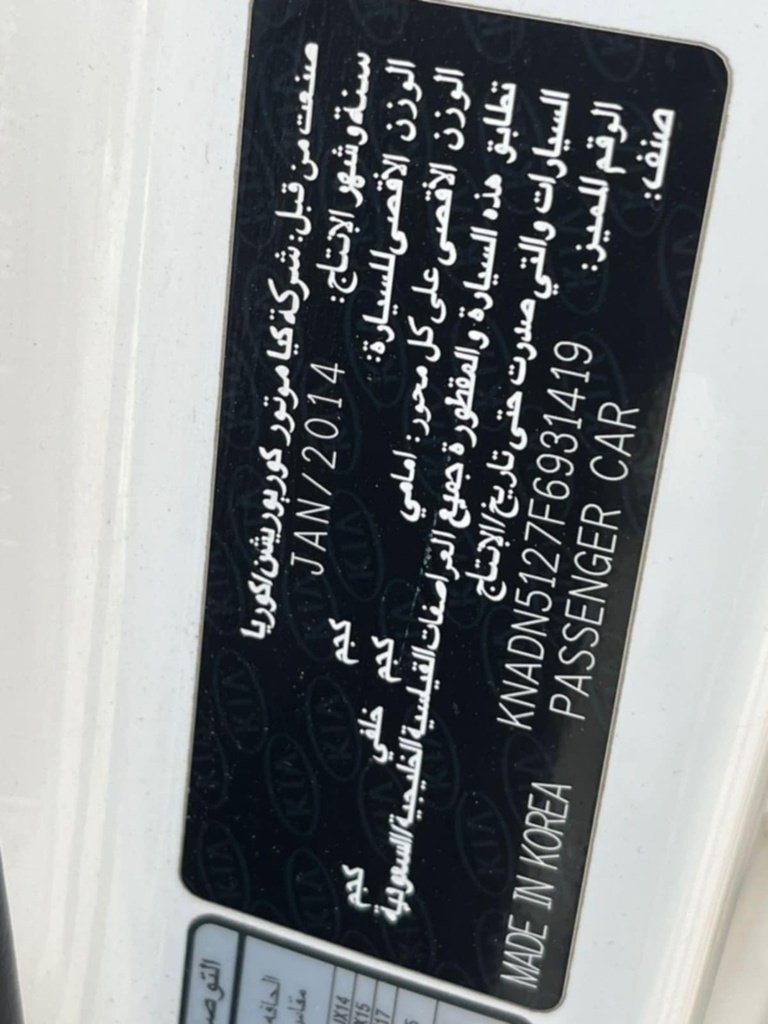 صنعت من قبل: شركة كيا موتور كوربوريشن/كوريا
سنة وشهر الإنتاج: JAN/2014
الوزن الأقصى للسيارة: كجم
الوزن الأقصى على كل محور: امامي كجم خلفي كجم
تطابق هذه السيارة والمقطورة جميع المواصفات القياسية الخليجية/السعودية
السيارات والتي صدرت حتى تاريخ/الإنتاج
الرقم المميز: KNADN5127F6931419
صنف: PASSENGER CAR
MADE IN KOREA